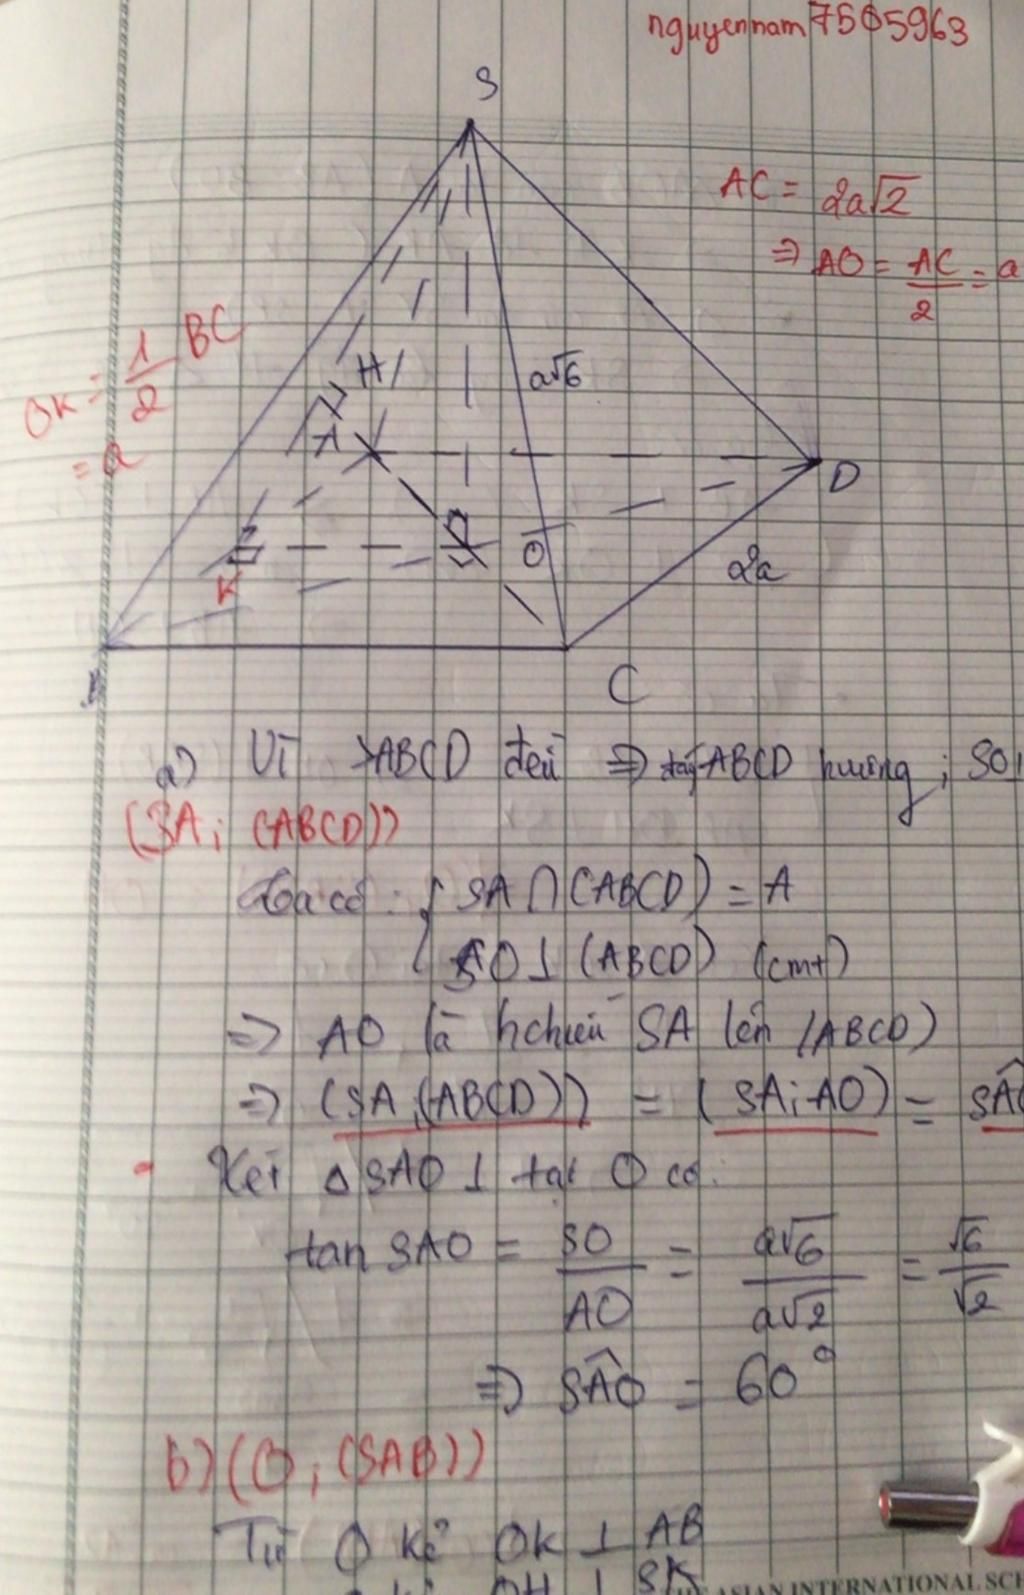 nguyennam7505963
S
AC = 2a√2
⇒ AO = AC/2 = a
OK = 1/2 BC
= a
H
a√6
A
D
O
2a
K
C
a) Vì SABCD đều ⇒ đáy ABCD vuông ; SO
(SA; (ABCD))
Ta có: { SA ∩ (ABCD) = A
SO ⊥ (ABCD) (cmt)
⇒ AO là hchiếu SA lên (ABCD)
⇒ (SA,(ABCD)) = (SA;AO) = SÂO
Xét Δ SAO ⊥ tại O có:
tan SAO = SO/AO = a√6/a√2 = √6/√2
⇒ SÂO = 60°
b) (O, (SAB))
Từ O kẻ OK ⊥ AB
OH ⊥ SK
ASIAN INTERNATIONAL SCH